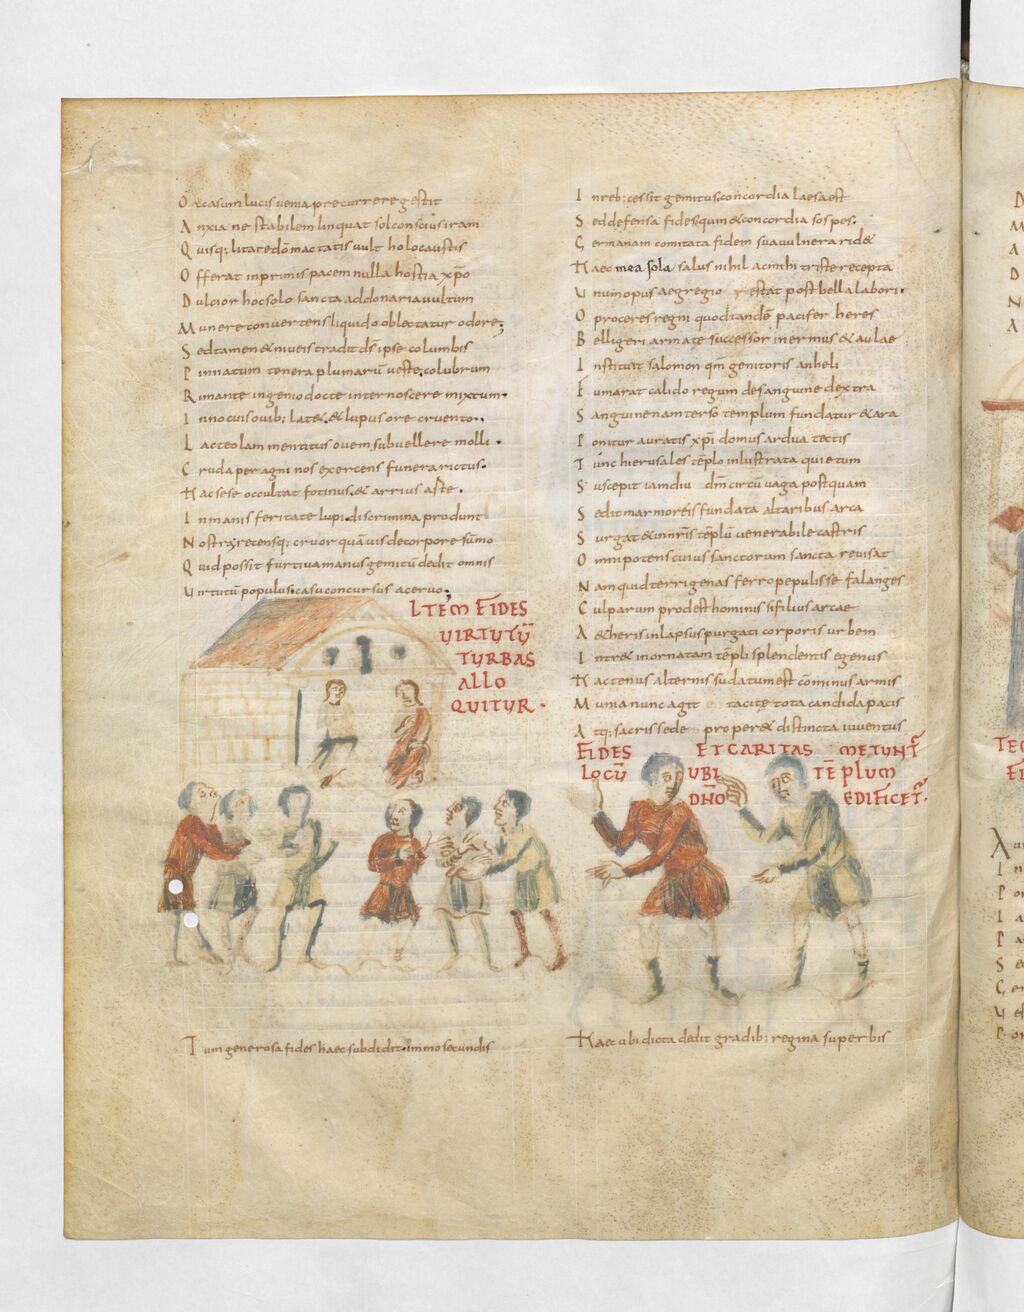 Occasum lucis uenia precurrere gestit
Anxia ne stabilem linquat sol conscius iram
Quisq; litare dō mactatis uult holocaustis
Offerat inprimis pacem nulla hostia xp̄o
Dulcior hoc solo sancta ad donaria uultum
Munere conuertens liquido oblectatur odore;
Sed tamen & niueis tradit d̄s ipse columbis
Pinnatum tenera plumarū ueste colubrum
Rimante ingenio docte internoscere mixtum.
Innocuis ouib; lat& & lupus ore cruento..
Lacteolam mentitus ouem sub uellere molli.
Cruda per agninos exercens funera rictus.
Hac sese occultat fotinus & arrius aste.
Inmanis feritate lupi discrimina produnt
recensq; cruor quāuis de corpore sūmo
Quid possit furtiua manus gemitū dedit omnis
Uirtutū populus casu concursus aceruo;
ITEM FIDES
UIRTUTŪ
TURBAS
ALLO
QUITUR.
Tum generosa fides haec subdidit immo secundis
In reb; cessit gemitus concordia laesa est
Sed defensa fides quin & concordia sospes.
Germanam comitata fidem sua uulnera rid&
Haec mea sola salus nihil ac mihi triste recepta
Unum opus aegregio restat post bella labori.
O proceres regni quod tandē pacifer heres
Belligeri armate successor inermus & aulae
Instituit salomon qm̄ genitoris anheli
Fumarat calido regum de sanguine dextra
Sanguine nam terso templum fundatur & ara
Ponitur auratis xp̄i domus ardua tectis
Tunc hierusales tēplo inlustrata quietum
Suscepit iam diu dm̄ circū uaga postquam
Sedit marmoreis fundata altaribus arca
Surgat & in nr̄is tēplū uenerabile castris
Omnipotens cuius sanctorum sancta reuisat
Nam quid terrigenas ferro pepulisse falanges
Culparum prodest hominis si filius arcae
A&heris inlapsus purgati corporis urbem
Intr& inornatam tēpli splendentis egenus
Hactenus alternis sudatum est cōminus armis
Munia nunc agit & tacite tota candida pacis
Atq; sacris sede proper& distincta iuuentus
FIDES ET CARITAS METUNT̄
LOCŪ UBI TĒPLUM
DN̄O EDIFICET̄.
Haec ubi dicta dedit gradib; regina superbis